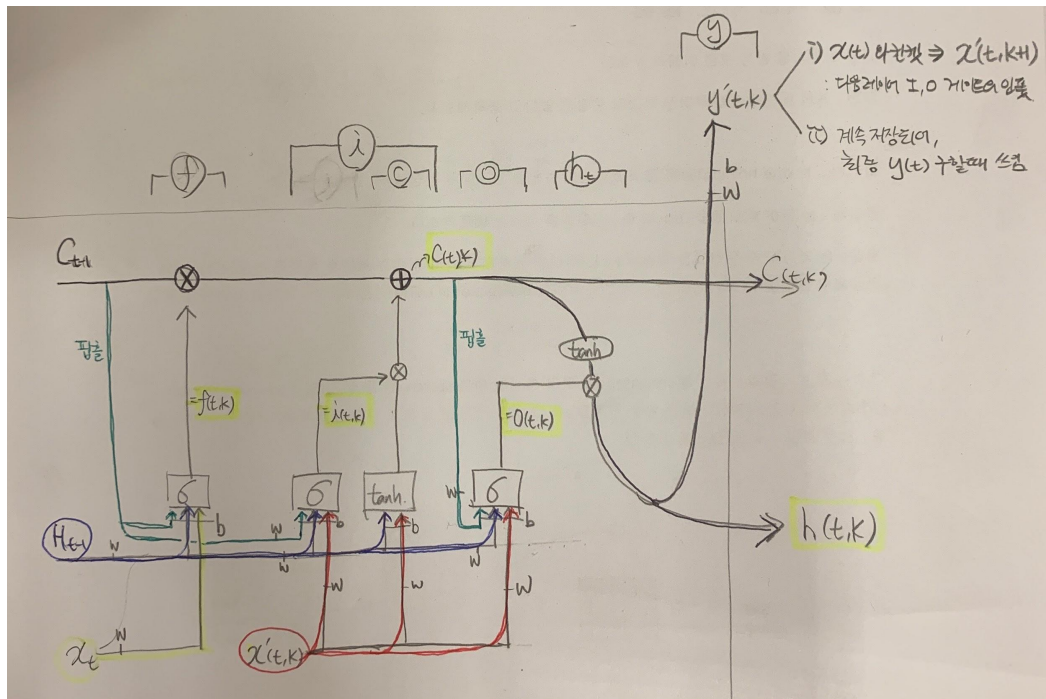 y
i) x(t)와 컨캣 ⇒ x'(t,k+1)
: 다음레이어 I,O 게이트의 인풋
y'(t,k)
ii) 계속 저장되어,
최종 y(t) 구할때 쓰임
b
W
f
i
c
o
h_t
C_{t-1}
C(t,k)
C(t,k)
핍홀
핍홀
tanh
=f(t,k)
=i(t,k)
=O(t,k)
σ
σ
tanh.
W
σ
b
b
b
b
H_{t-1}
W
W
W
W
h(t,k)
W
W
W
W
x_t
x'(t,k)